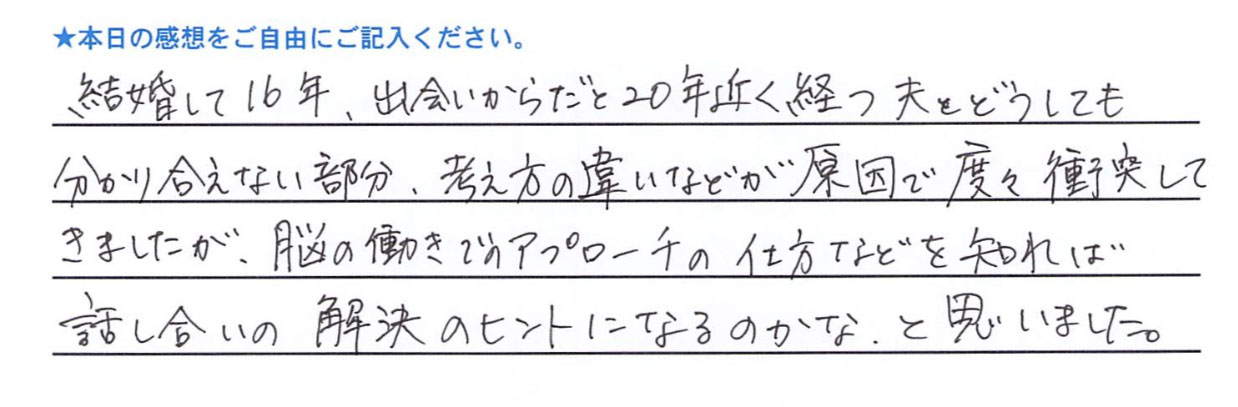 ★本日の感想をご自由にご記入ください。
結婚して16年、出会いからだと20年近く経つ夫とどうしても
分かり合えない部分、考え方の違いなどが原因で度々衝突して
きましたが、脳の働きでのアプローチの仕方などを知れば
話し合いの解決のヒントになるのかな、と思いました。